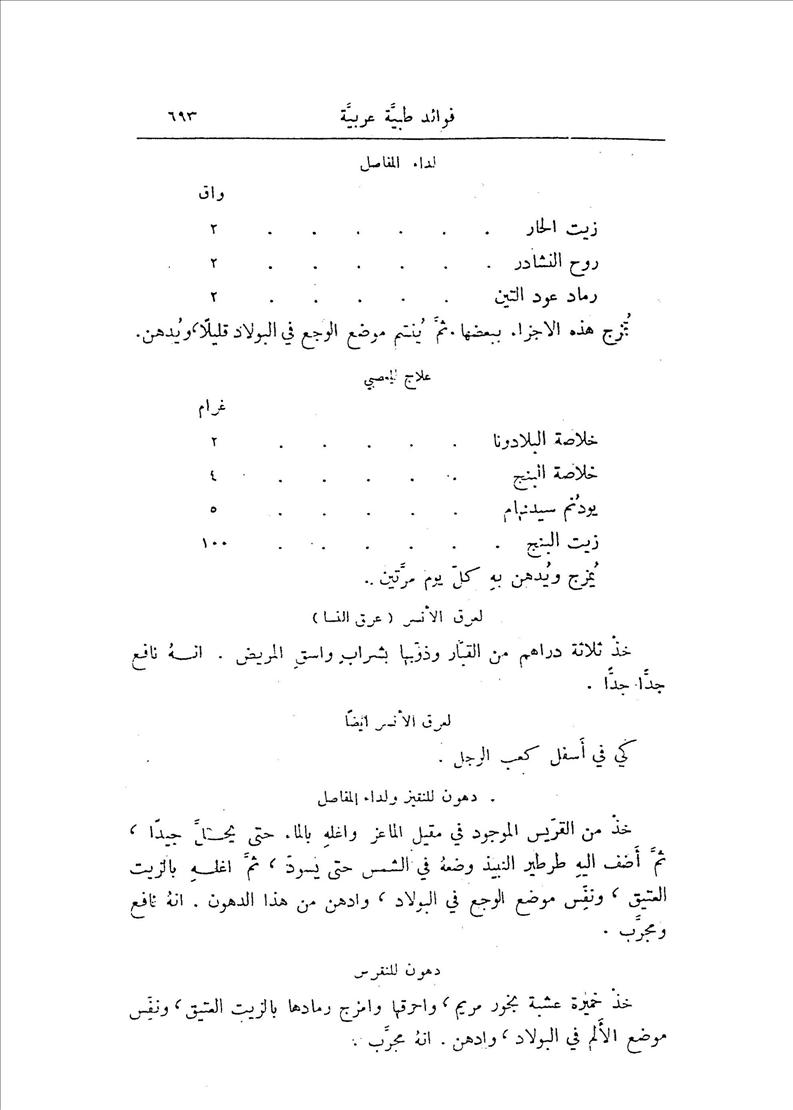 فوائد طبيَّة عربيَّة ٦٩٣
لداء المفاصل
واق
زيت الحار . . . . . . ٢
روح النشادر . . . . . . ٢
رماد عود التين . . . . . ٢
تُمزج هذه الاجزاء ببعضها. ثمَّ يُنتم موضع الوجع في البولاد قليلًا، ويُدهن.
علاج لعصبي
غرام
خلاصة البلادونا . . . . . ٢
خلاصة البنج . . . . . ٤
يودنم سيدنهام . . . . . ٥
زيت البنج . . . . . . ١٠٠
يُمزج ويُدهن بهِ كلّ يوم مرَّتين .
لعرق الأنسر ( عرق النسا )
خذْ ثلاثة دراهم من القبَّار وذوّبها بشرابٍ واسقِ المريض . انــهُ نافع
جدًّا جدًّا .
لعرق الأنسر ايضًا
كي في أَسفل كعب الرجل .
دهون للنقيز ولداء المفاصل
خذْ من القرّيس الموجود في مقيل الماعز واغلهِ بالماء حتى يحــلَّ جيدًا ،
ثمَّ أَضف اليهِ طرطير النبيذ وضعهُ في الشمس حتى يَسودّ ، ثمَّ اغلــهِ بالزيت
العتيق ، ونفِّس موضع الوجع في البولاد ، وادهن من هذا الدهون . انهُ نافع
ومجرَّب .
دهون للنقرس
خذْ خميرة عشبة بخور مريم ، واحرقها وامزج رمادها بالزيت العتيق ، ونفِّس
موضع الأَلم في البولاد ، وادهن . انهُ مجرَّب .